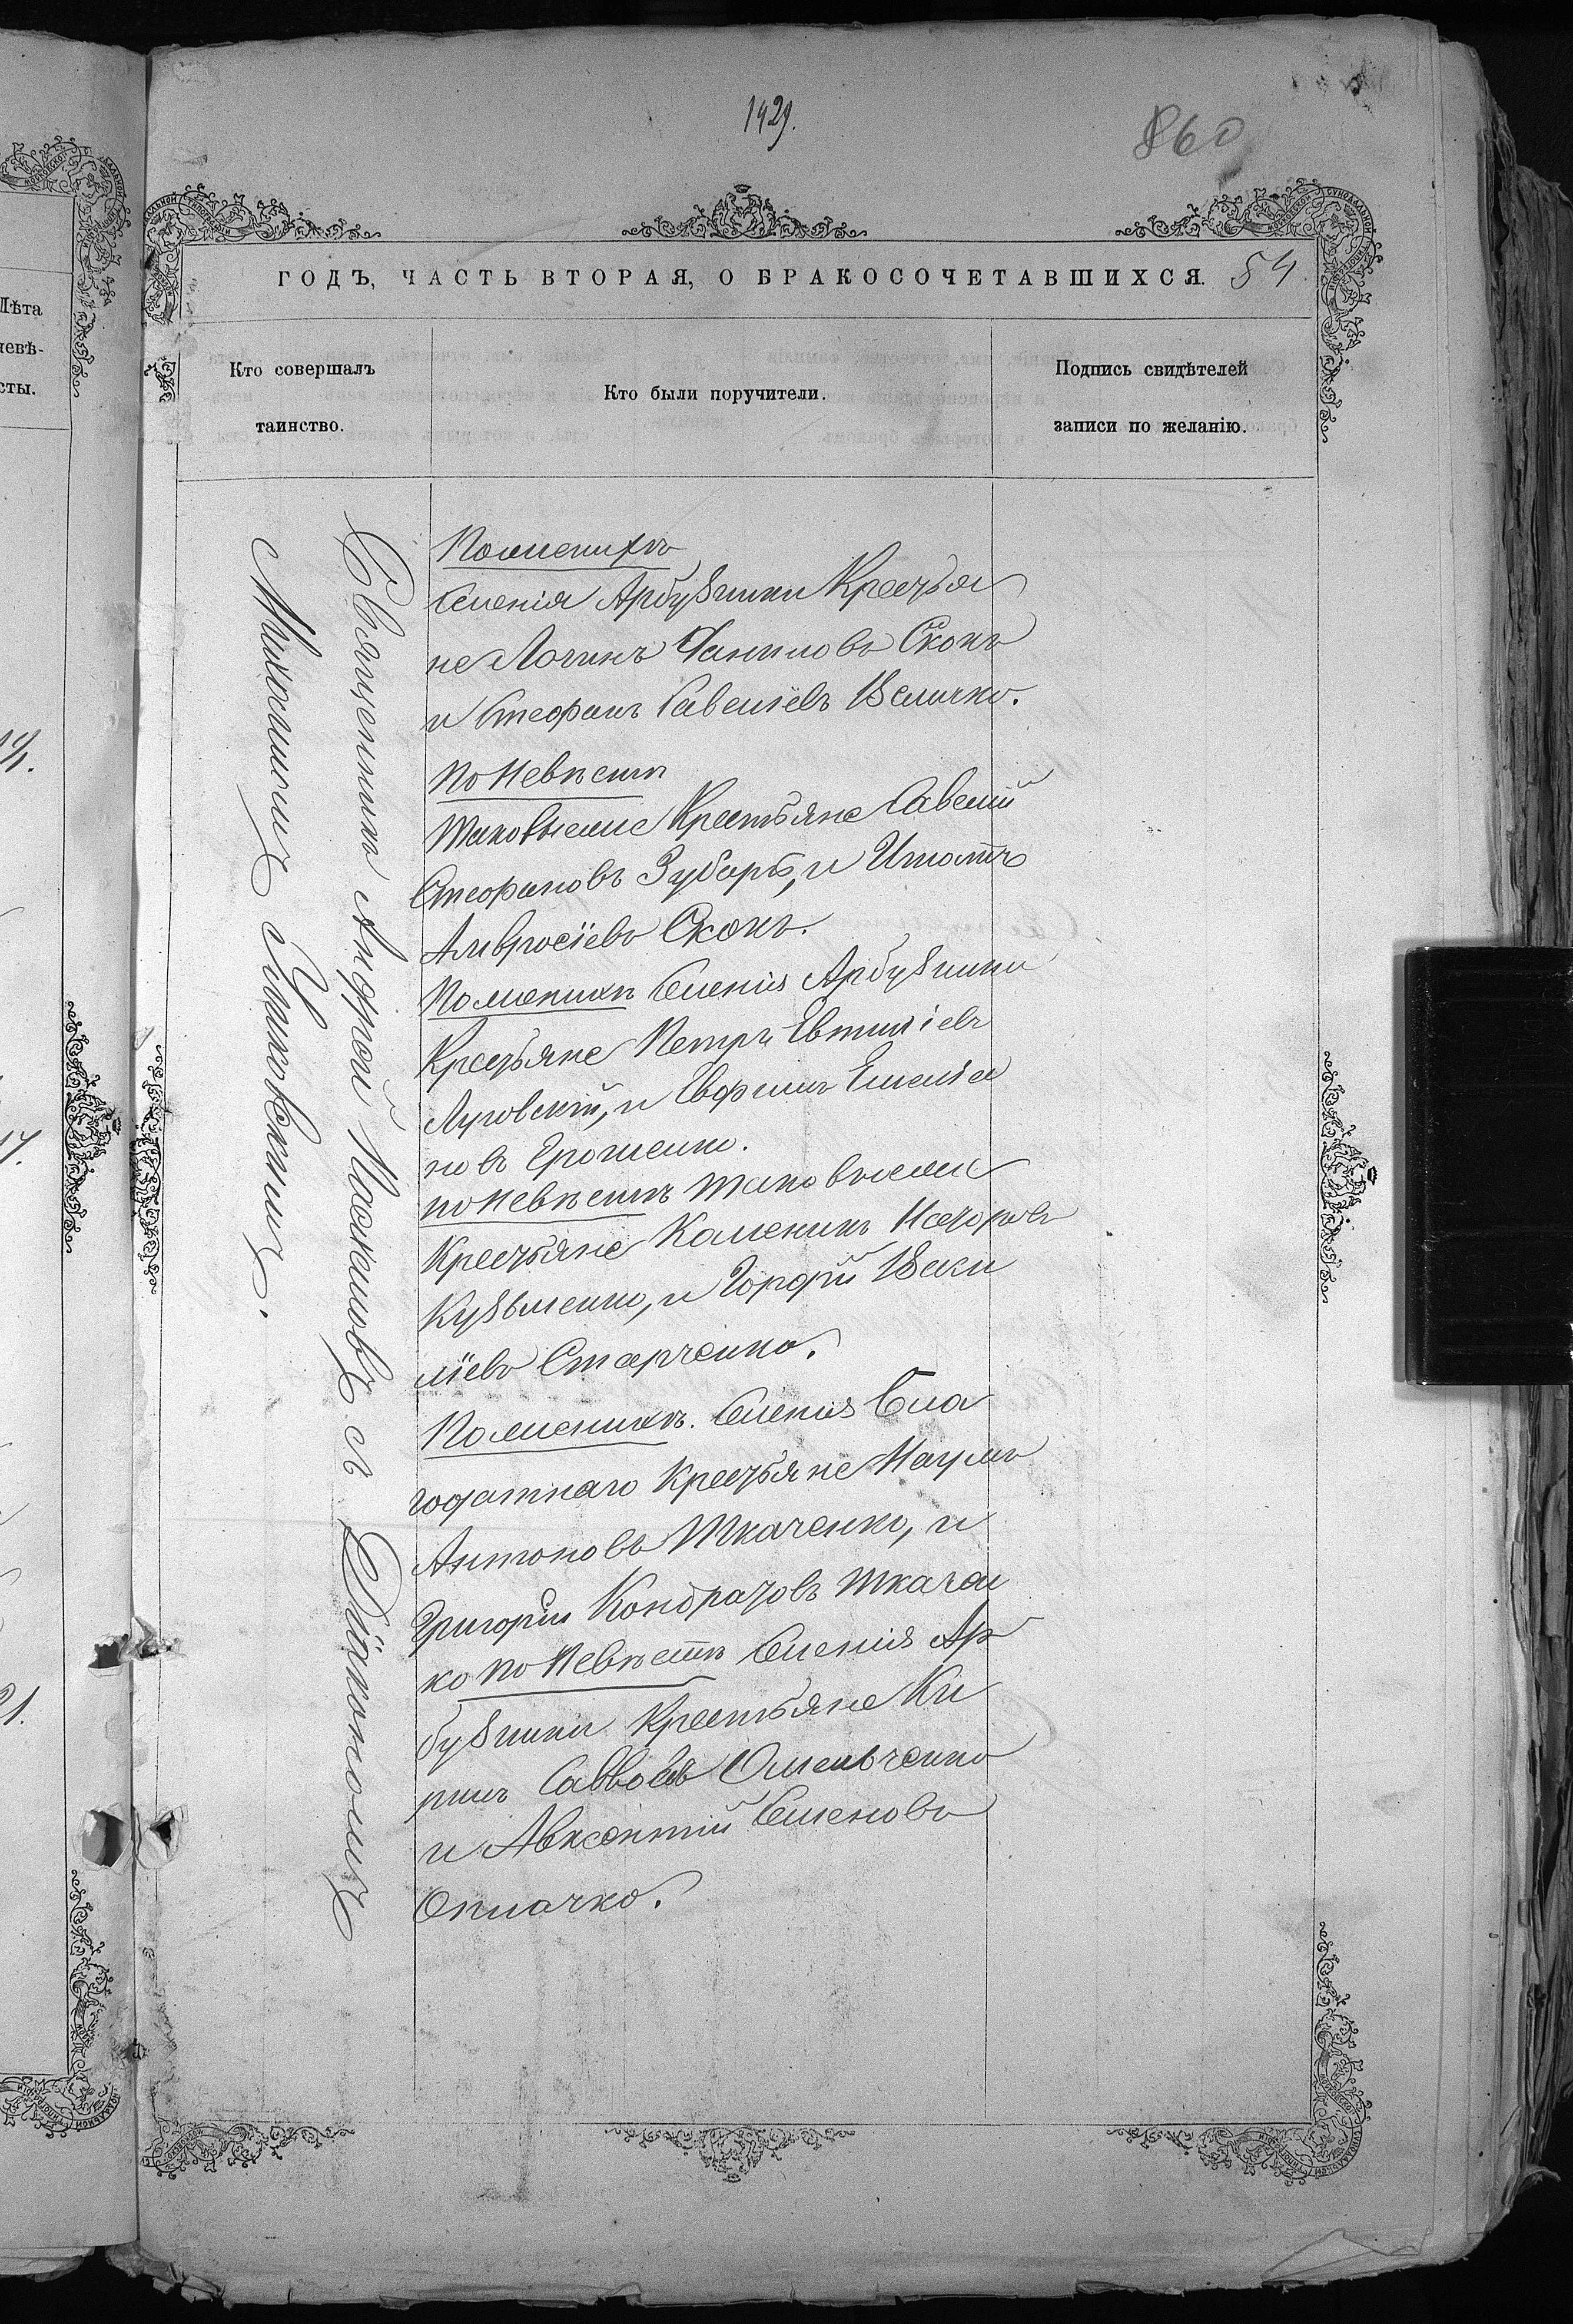 1429.
860
ГОДЪ, ЧАСТЬ ВТОРАЯ, О БРАКОСОЧЕТАВШИХСЯ. 54
Лѣта
невѣ-
сты.
Кто совершалъ
таинство.
Кто были поручители.
Подпись свидѣтелей
записи по желанію.
Священникъ Андрей Москаловъ съ Діакономъ
Михаиломъ
По женихѣ
Селенія Арбузинки Крестья
не Логинъ Даниловъ Скокъ
и Стефанъ Савеліевъ Величко.
по Невѣстѣ
таковыеже Крестьяне Савелій
Стефановъ Зубарь, и Игнатъ
Амвросіевъ Скокъ.
По женихѣ Селенія Арбузинки
Крестьяне Петръ Евтихіевъ
Луговскій, и Евфимъ Емелья
новъ Ерошенко.
по Невѣстѣ таковыеже
Крестьяне Каленикъ Несторовъ
Кузьменко, и Гордѣй Васи
ліевъ Старченко.
По женихѣ. Селенія Бла
годатнаго Крестьяне Наумъ
Антоновъ Ткаченко, и
Григорій Кондратовъ Ткачен
ко по Невѣстѣ Селенія Ар
бузинки Крестьяне Ки
рилъ Саввовъ Омельченко
и Авксентій Семеновъ
Опличко.
14.
17.
21.